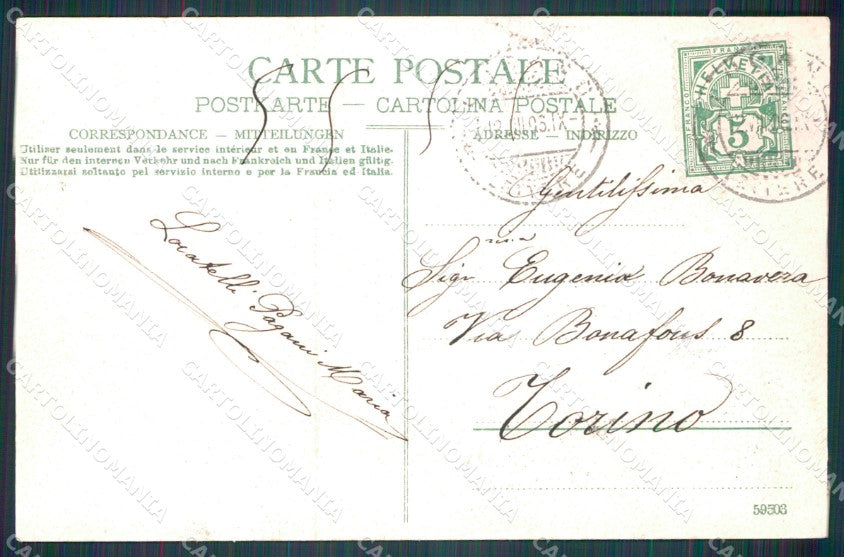 CARTE POSTALE
POSTKARTE — CARTOLINA POSTALE
CORRESPONDANCE — MITTEILUNGEN
Utiliser seulement dans le service intérieur et en France et Italie
Nur für den internen Verkehr und nach Frankreich und Italien gültig.
Utilizzarsi soltanto pel servizio interno e per la Francia ed Italia.
ADRESSE — INDIRIZZO
FRANCO
HELVETIA
5
Gentilissima
Sigr ina Eugenia Bonavera
Via Bonafous 8
Torino
Locatelli Pagani Maria
59503
CARTOLINOMANIA